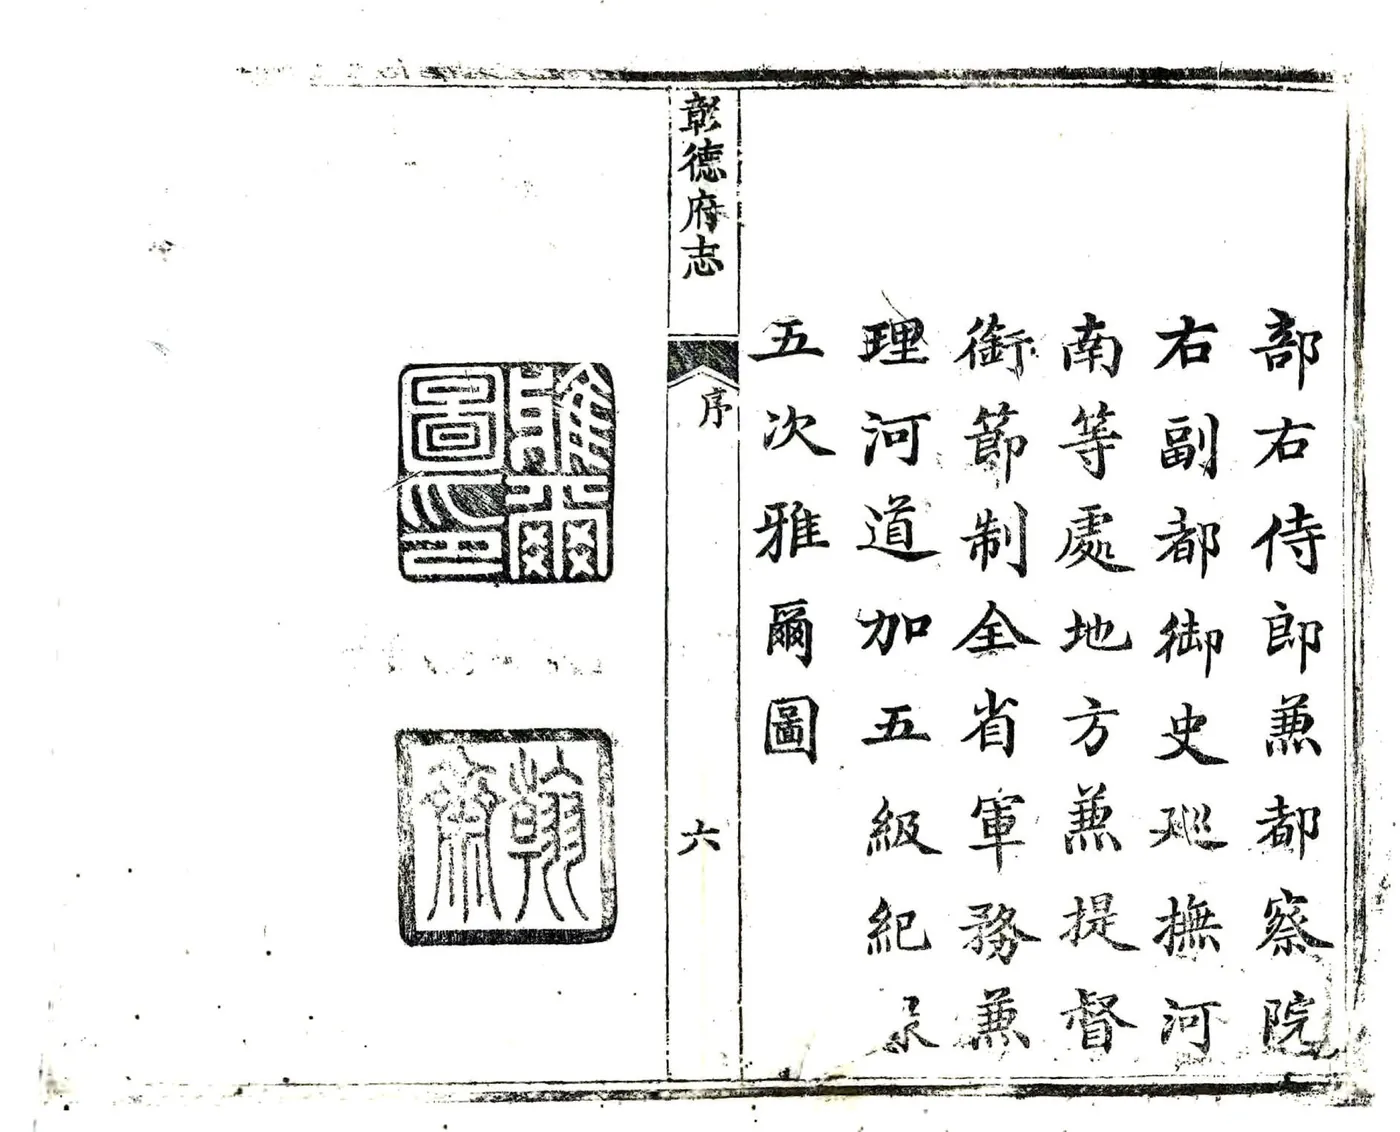 部右侍郎兼都察院
右副都御史廵撫河
南等處地方兼提督
銜節制全省軍務兼
理河道加五級紀录
五次雅爾圖
彰德府志
序
六
雅爾圖印
翰齋